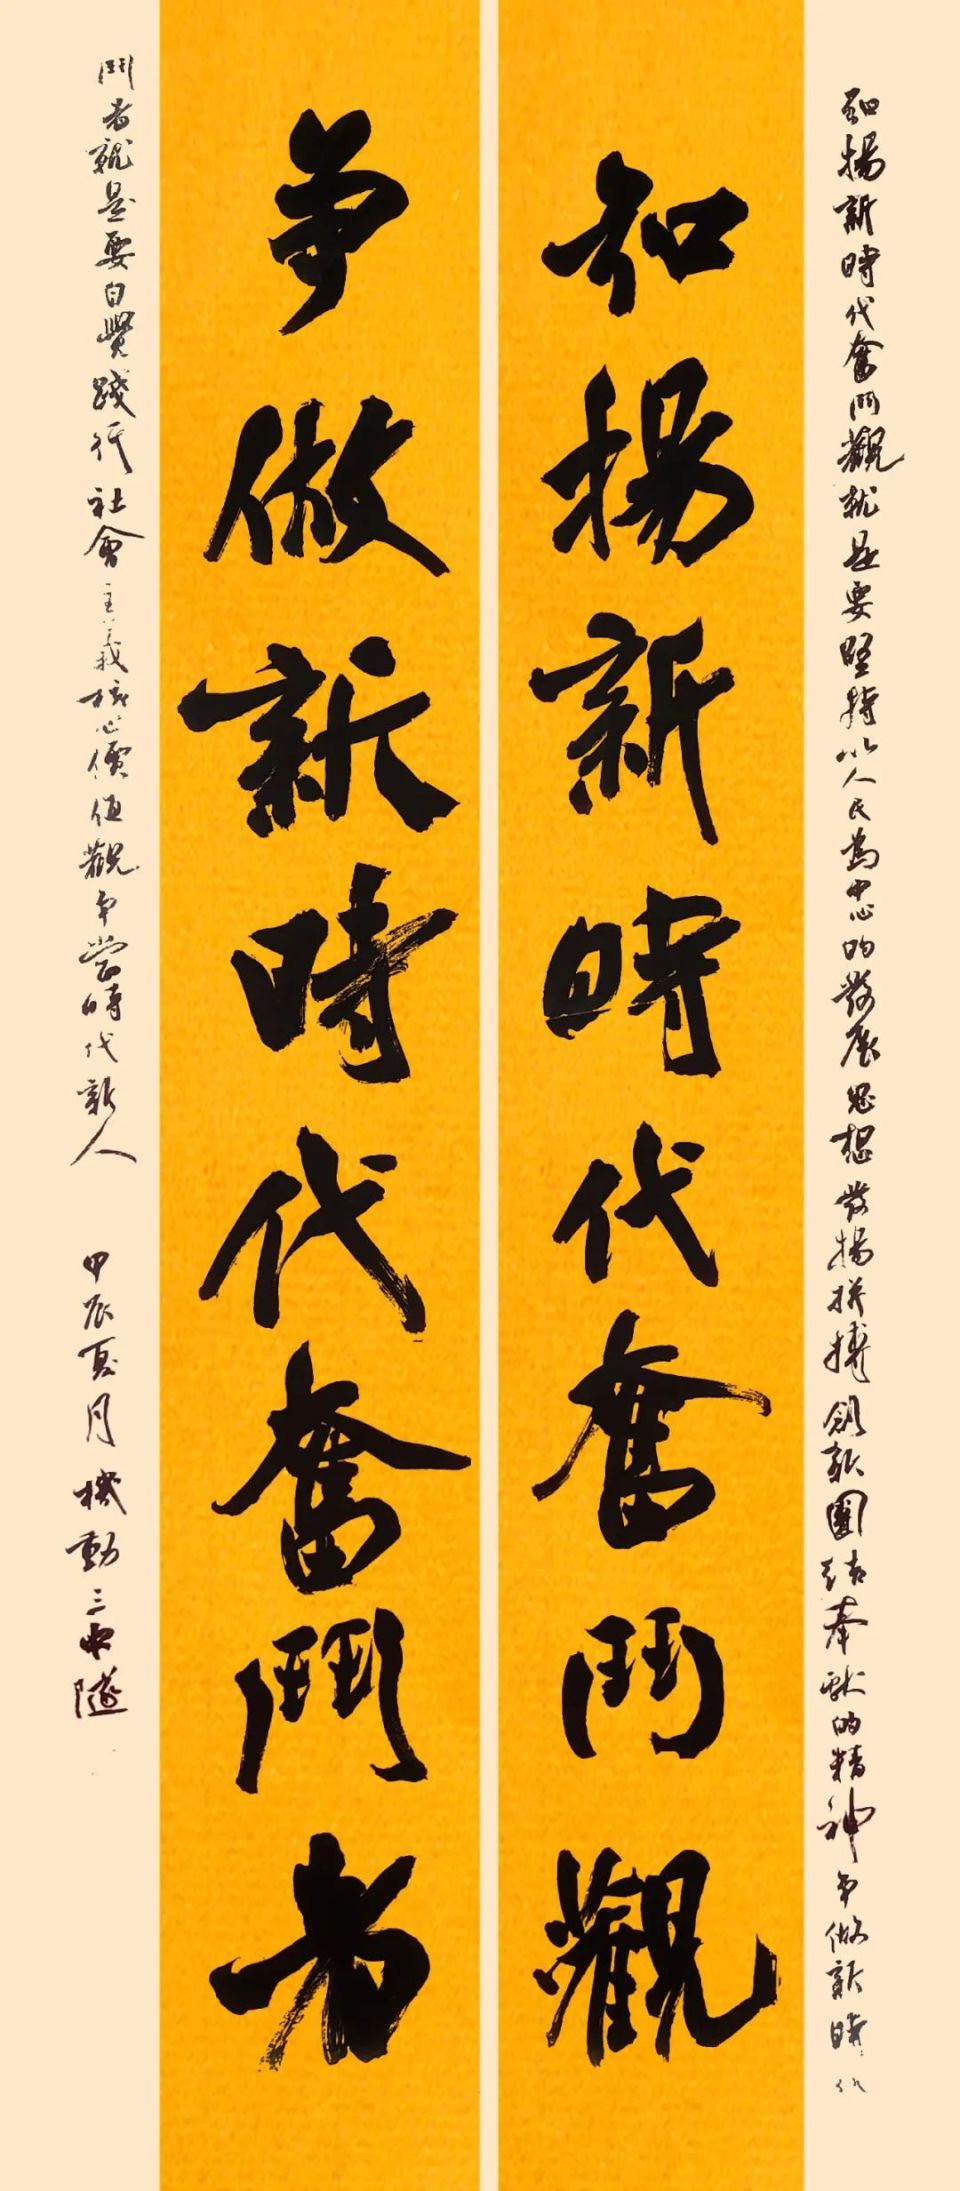 知揚新時代奮鬥觀就是要堅持以人民為中心的發展思想發揚拼搏創新團結奉獻的精神争做新時代
知揚新時代奮鬥觀
争做新時代奮鬥者
鬥者就是要自覺踐行社會主義核心價值觀争當時代新人 甲辰夏月 機動三中隊